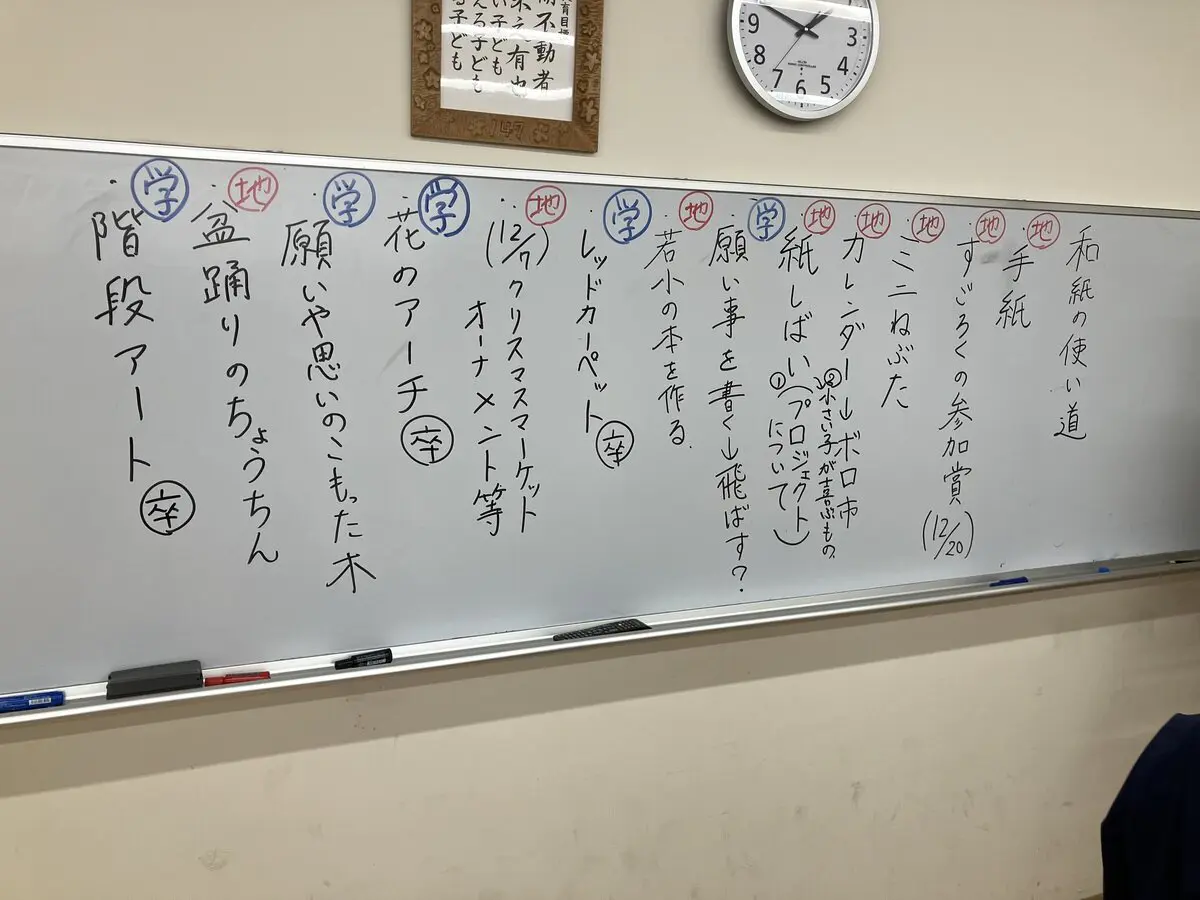 育目標
不動者
有也
い子ども
える子ども
る子ども
147
9
8
7
6
5
4
3
和紙の使い道
地 ・手紙
地 ・すごろくの参加賞(12/20)
地 ・ミニねぶた
地 ・カレンダー→ボロ市
②小さい子が喜ぶもの
地 ・紙しばい(プロジェクト)
①について
学 ・願い事を書く→飛ばす?
地 ・若小の本を作る.
学 ・レッドカーペット 卒
地 ・(12/7)クリスマスマーケット
オーナメント等
学 ・花のアーチ 卒
学 ・願いや思いのこもった木
地 ・盆踊りのちょうちん
学 ・階段アート 卒